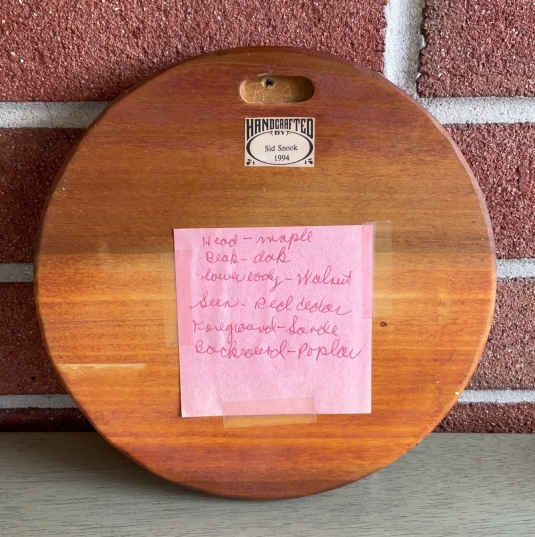 HANDCRAFTED
BY
Sid Snook
1994
Head - maple
Beak - oak
lower body - Walnut
Sun - Red cedar
Background - Poplar